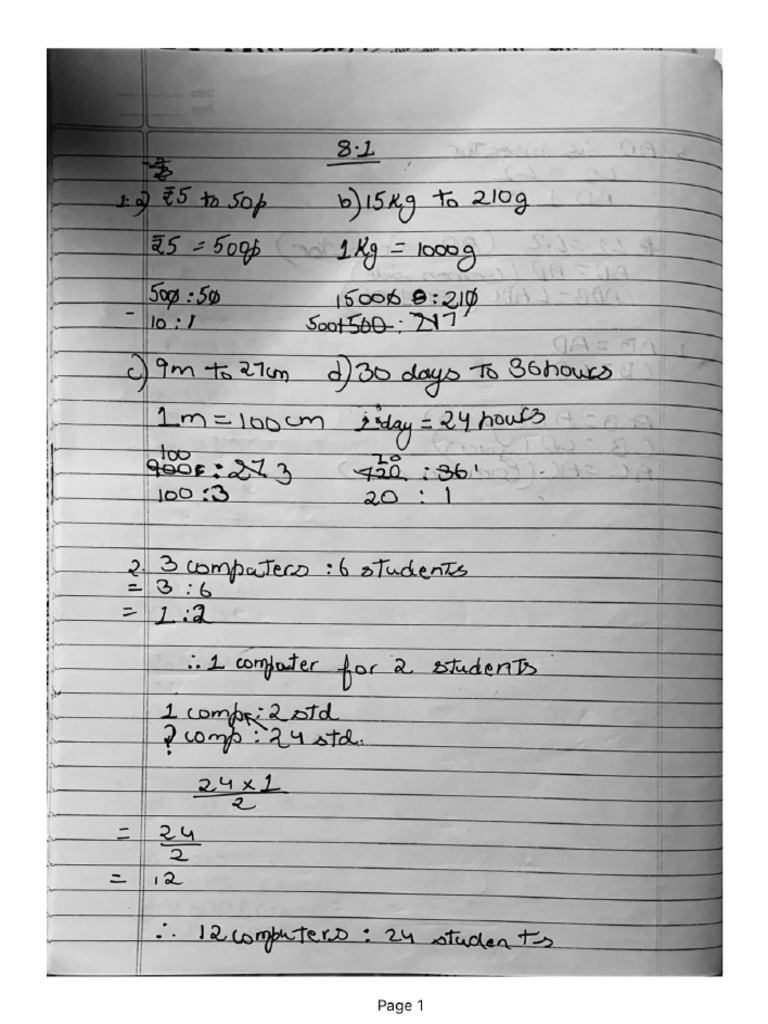 8.1
1. a) ₹5 to 50p b) 15kg to 210g
₹5 = 500p 1kg = 1000g
500 : 50 15000 : 210
10 : 1 500+500 : 217
c) 9m to 27cm d) 30 days to 36hours
1m = 100cm 1 day = 24 hours
100 20
900 : 27 3 720 : 36 1
100 : 3 20 : 1
2. 3 computers : 6 students
= 3 : 6
= 1 : 2
∴ 1 computer for 2 students
1 comp : 2 std
? comp : 24 std.
24 x 1
2
= 24
2
= 12
∴ 12 computers : 24 students
Page 1